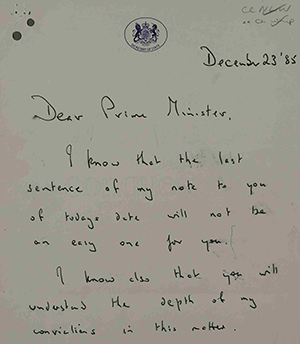 SECRETARY OF STATE
December 23 '85
Dear Prime Minister,
I know that the last
sentence of my note to you
of todays date will not be
an easy one for you.
I know also that you will
understand the depth of my
convictions in this matter.